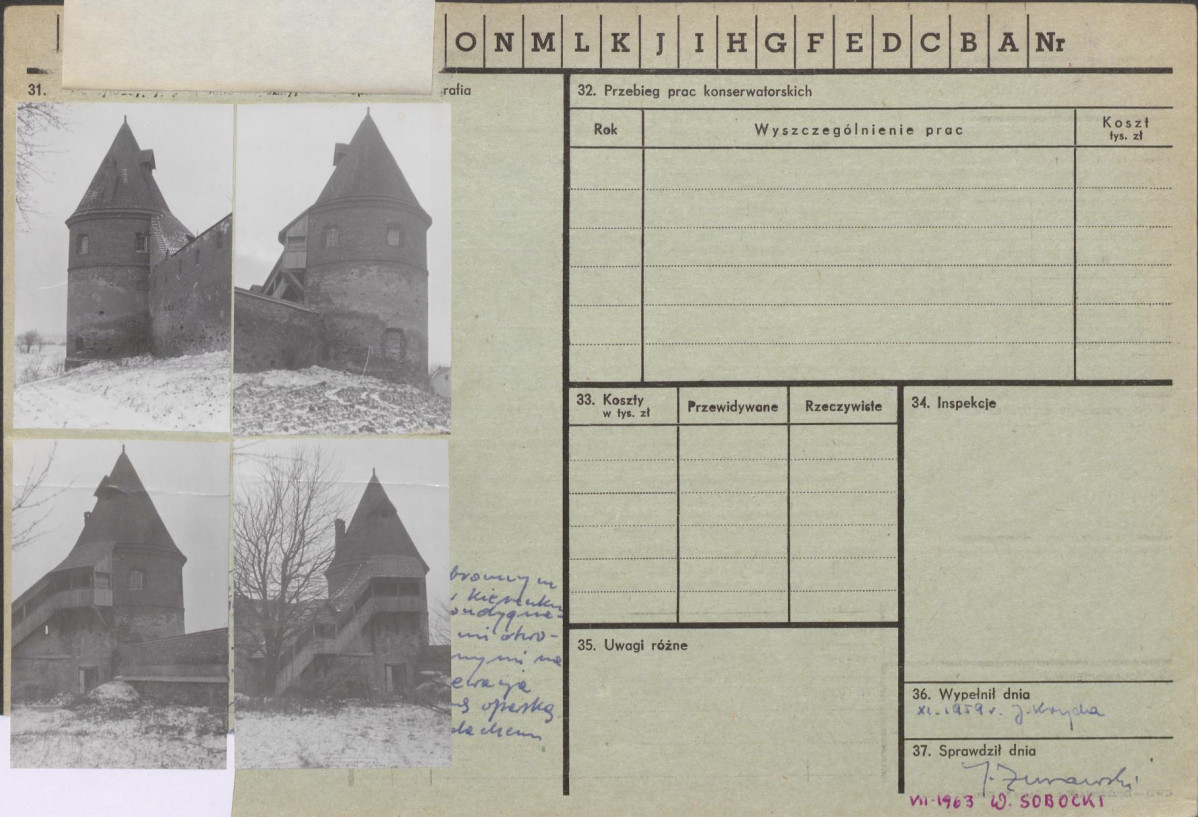 O N M L K J I H G F E D C B A Nr
31.
rafia
32. Przebieg prac konserwatorskich
Rok
Wyszczególnienie prac
Koszt
tys. zł
33. Koszty
w tys. zł
Przewidywane
Rzeczywiste
34. Inspekcje
bronnym
kierunku
ondygna-
mi otwo-
nymi na
ewacja
opaską
dachem
35. Uwagi różne
36. Wypełnił dnia
XI. 1959 r. J. Krzycha
37. Sprawdził dnia
J. Żurawski
VII-1963 W. SOBOCKI